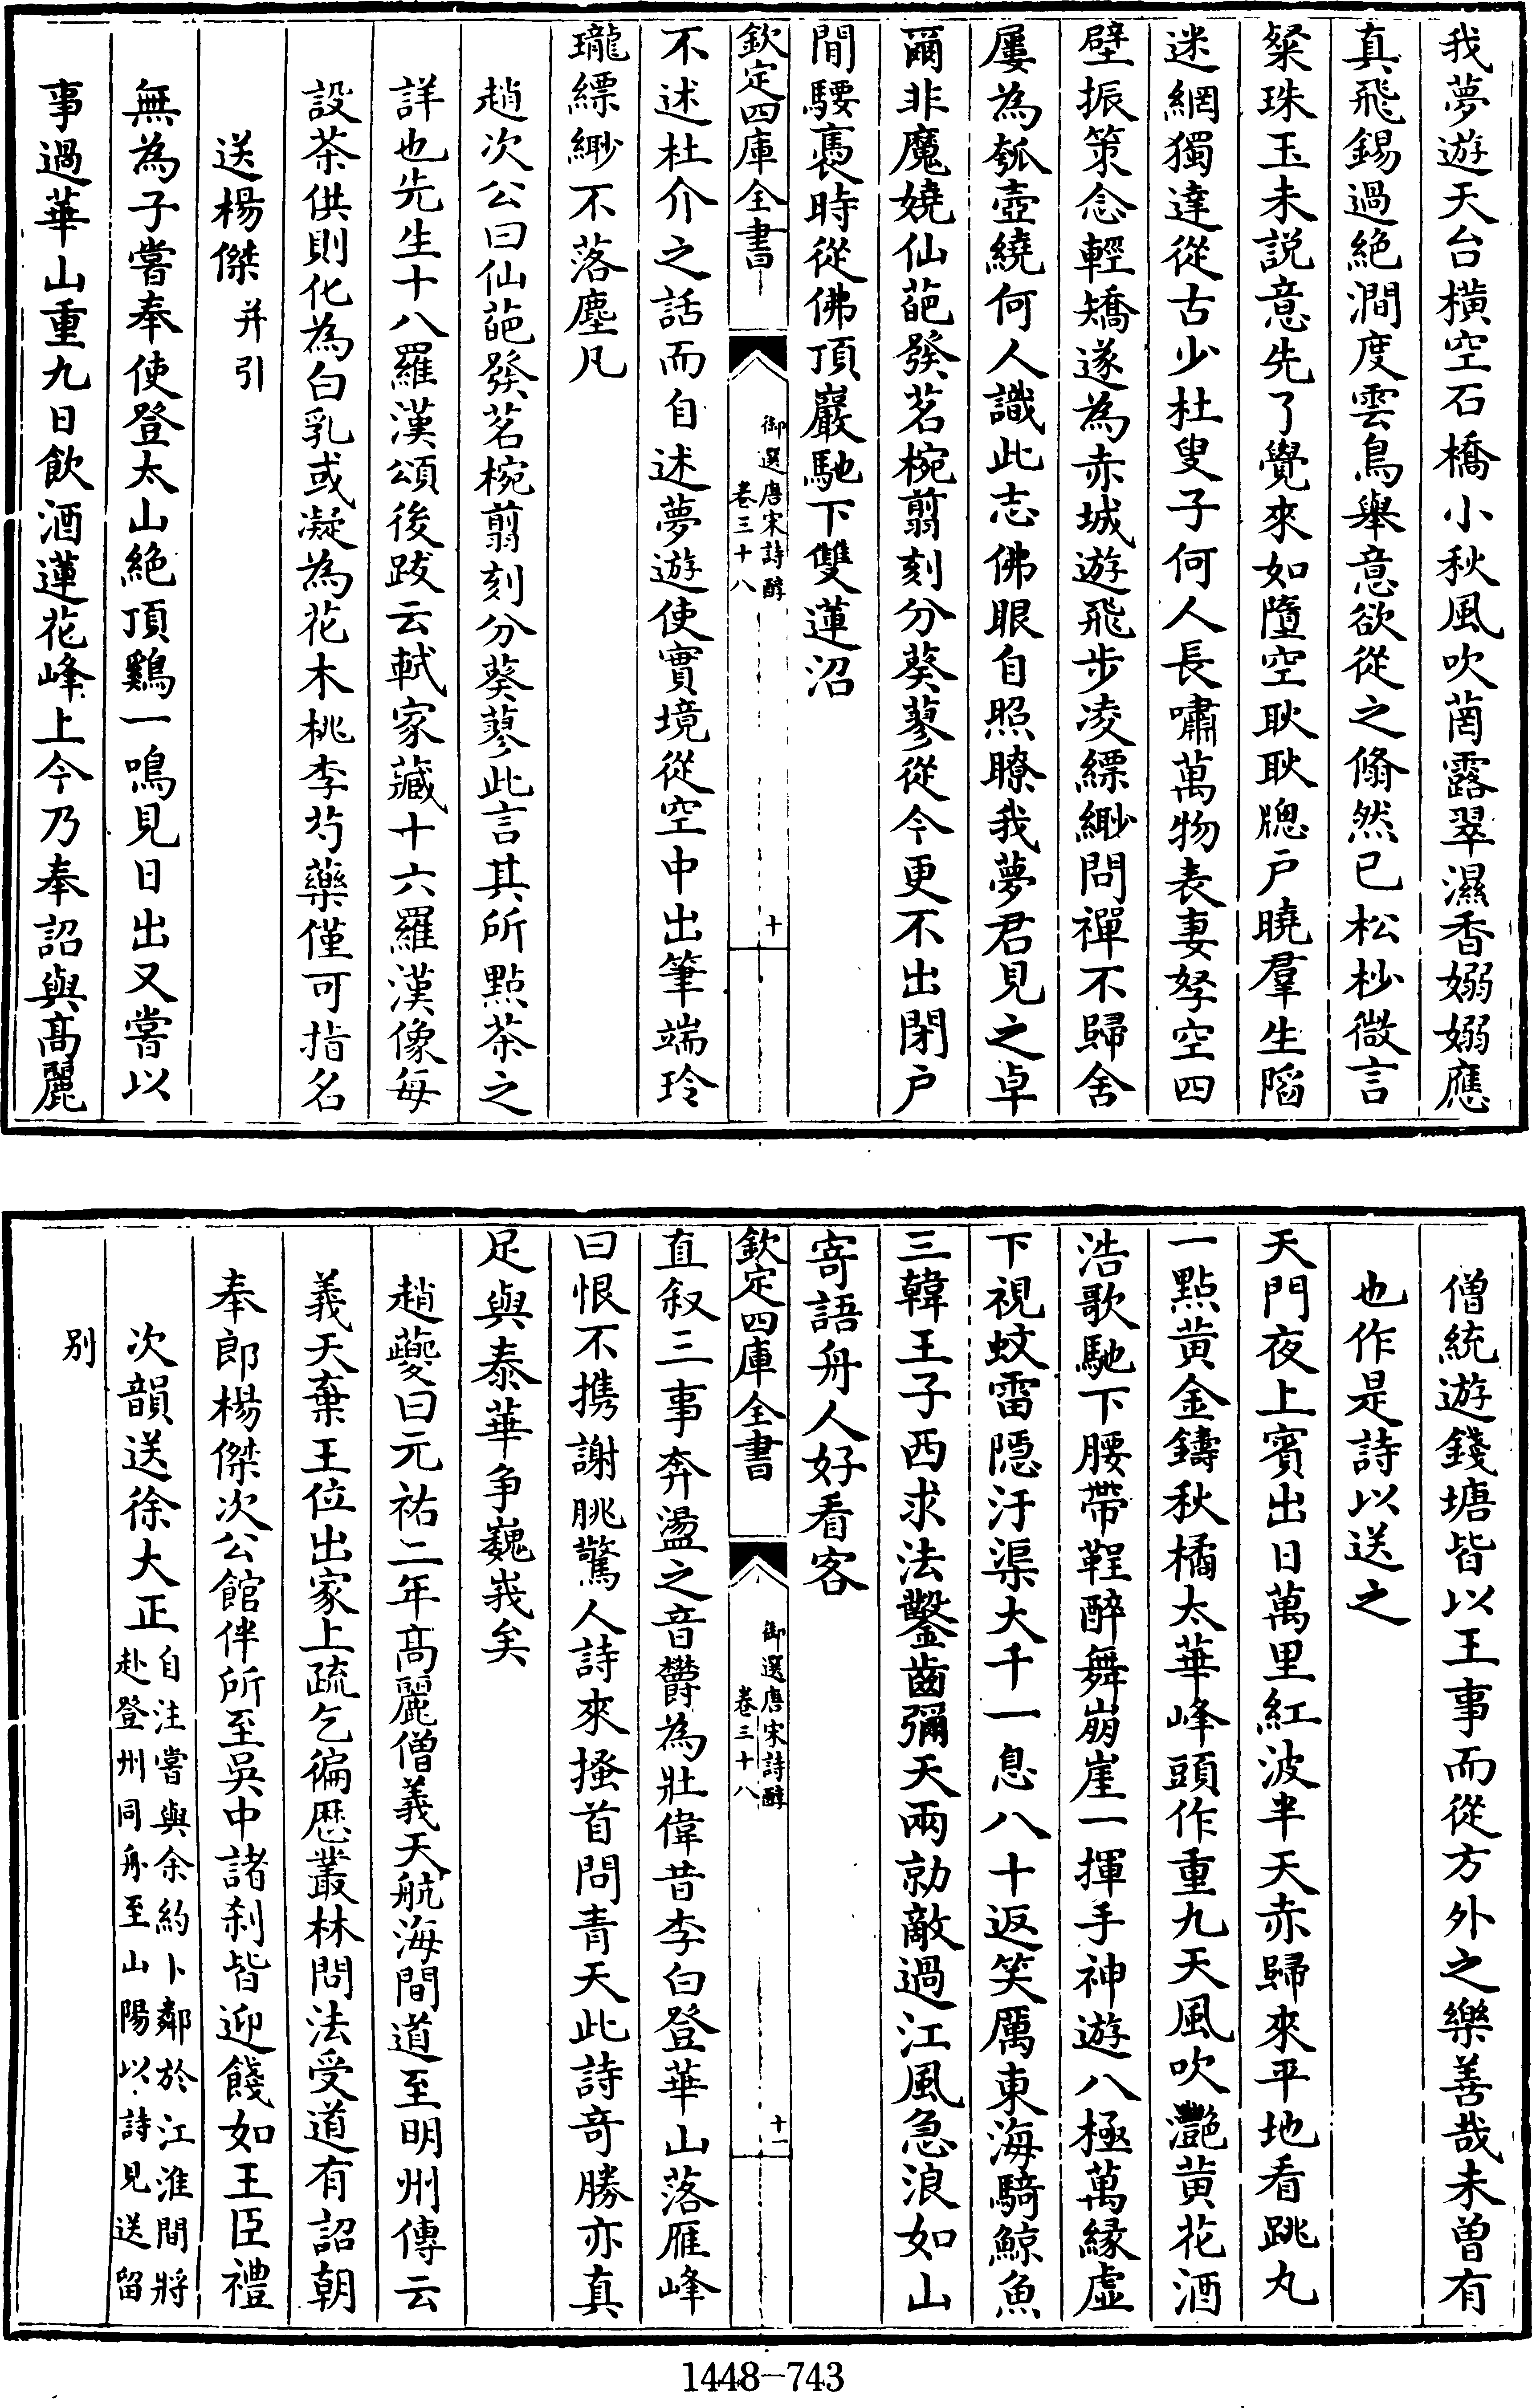 我夢遊天台橫空石橋小秋風吹菌露翠濕香嫋嫋應
真飛錫過絶澗度雲鳥舉意欲從之翛然已松杪微言
粲珠玉未説意先了覺來如墮空耿耿牕戶曉羣生陷
迷網獨達從古少杜叟子何人長嘯萬物表妻孥空四
壁振策念輕矯遂為赤城遊飛步凌縹緲問禪不歸舍
屢為瓠壺繞何人識此志佛眼自照瞭我夢君見之卓
爾非魔嬈仙葩發茗椀翦刻分葵蓼從今更不出閉户
閒騕褭時從佛頂巖馳下雙蓮沼
欽定四庫全書
御選唐宋詩醇
卷三十八
十
不述杜介之話而自述夢遊使實境從空中出筆端玲
瓏縹緲不落塵凡
趙次公曰仙葩發茗椀翦刻分葵蓼此言其所點茶之
詳也先生十八羅漢頌後跋云軾家藏十六羅漢像每
設茶供則化為白乳或凝為花木桃李芍藥僅可指名
送楊傑并引
無為子嘗奉使登太山絶頂鷄一鳴見日出又嘗以
事過華山重九日飲酒蓮花峰上今乃奉詔與髙麗
僧統遊錢塘皆以王事而從方外之樂善哉未曾有
也作是詩以送之
天門夜上賓出日萬里紅波半天赤歸來平地看跳丸
一點黃金鑄秋橘太華峰頭作重九天風吹灔黄花酒
浩歌馳下腰帶鞓醉舞崩崖一揮手神遊八極萬縁虚
下視蚊雷隠汙渠大千一息八十返笑厲東海騎鯨魚
三韓王子西求法鑿齒彌天兩勍敵過江風急浪如山
寄語舟人好看客
欽定四庫全書
御選唐宋詩醇
卷三十八
十一
直叙三事奔盪之音鬱為壯偉昔李白登華山落雁峰
曰恨不携謝朓驚人詩來搔首問青天此詩竒勝亦真
足與泰華争巍峩矣
趙夔曰元祐二年髙麗僧義天航海間道至明州傳云
義天棄王位出家上疏乞徧歴叢林問法受道有詔朝
奉郎楊傑次公館伴所至吳中諸刹皆迎餞如王臣禮
次韻送徐大正自注嘗與余約卜鄰於江淮間將
赴登州同舟至山陽以詩見送留
别
1448-743